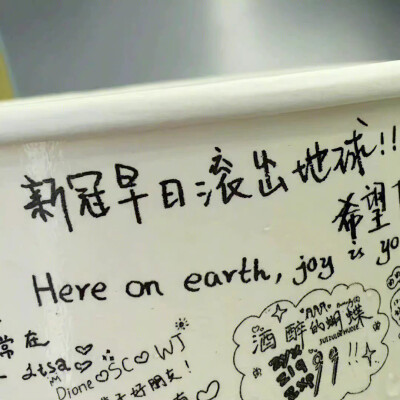 新冠早日滚出地球!!
希望
Here on earth, joy is yo
常在
Dione♡SC♡WJ
好朋友!
酒醉的蝴蝶